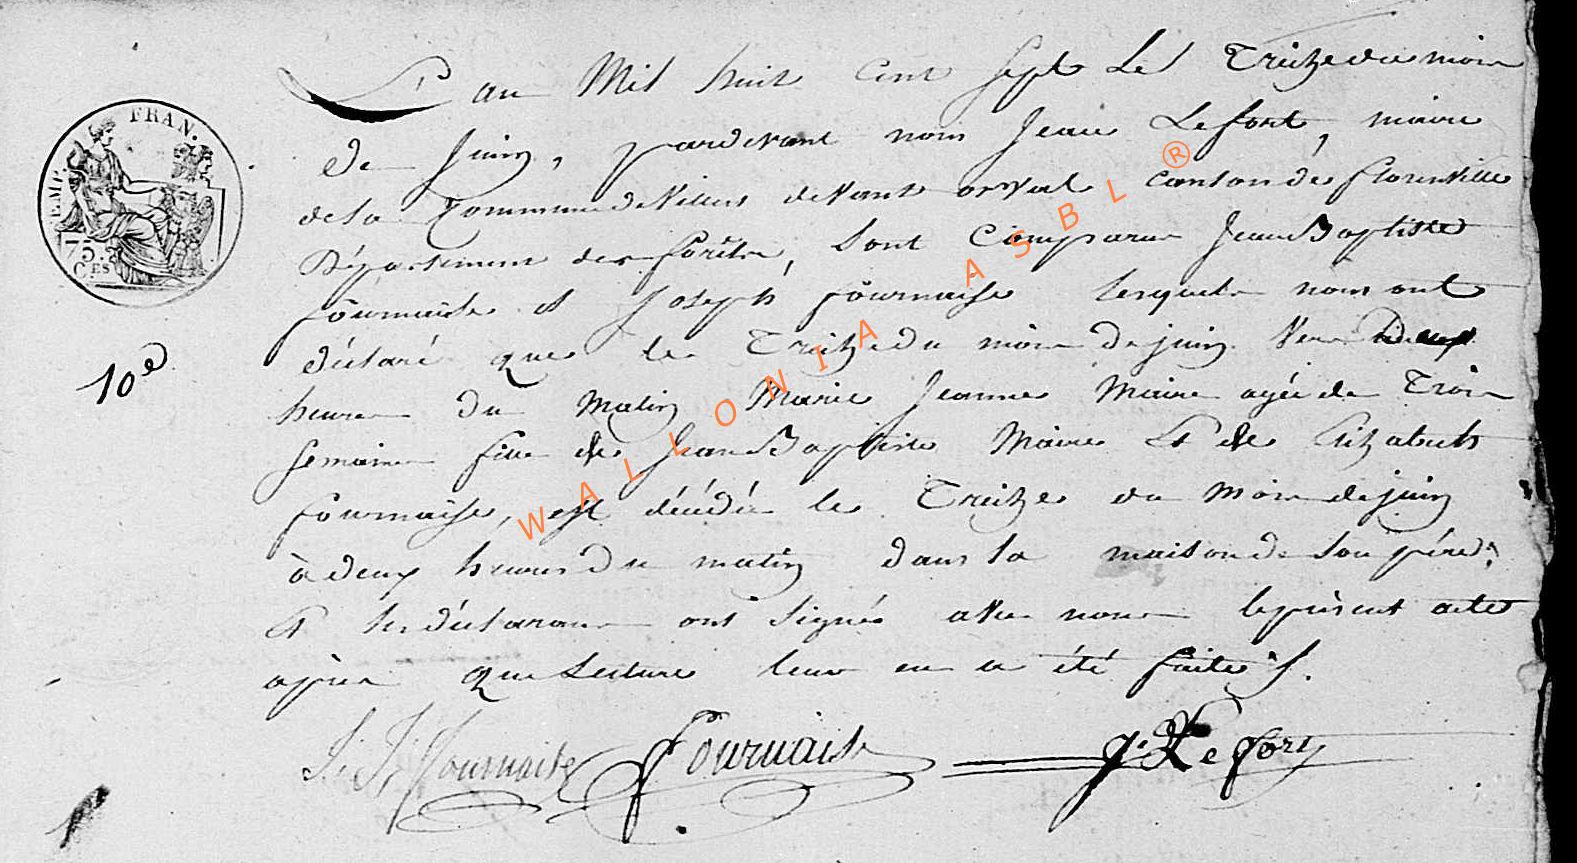 EMP. FRAN.
75.
CES
10e
L'an Mil huit cent sept Le Treize du mois
de Juin, pardevant nous Jean Lefort, maire
de la Commune de Villers devant orval canton de florenville
Département des forêts, sont Comparus Jean Baptiste
fournaise et Joseph fournaise lesquels nous ont
déclaré que le Treize du mois de juin vers deux
heures du Matin Marie Jeanne Maire agée de Trois
semaines fille de Jean Baptiste Maire et de Elizabeth
fournaise, est décédée le Treize du Mois de juin
à deux heures du matin dans la maison de son père
et les déclarans ont signés avec nous le présent acte
après que Lecture leur en a été faite
J. J. fournaise fournaise J. Lefort
WALLONIA ASBL ®